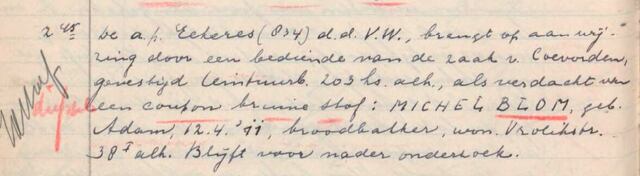 2 45 De a.p. Eckeres (834) d.d. V.W., brengt op aanwij-
zing door een bediende van de zaak v. Coevorden,
gevestigd Ceintuurb. 203 hs. alh., als verdacht van
diefstal een coupon bruine stof: MICHEL BLOM, geb.
Adam, 12.4.'11, broodbakker, won. Vrolikstr.
38 I alh. Blijft voor nader onderzoek.